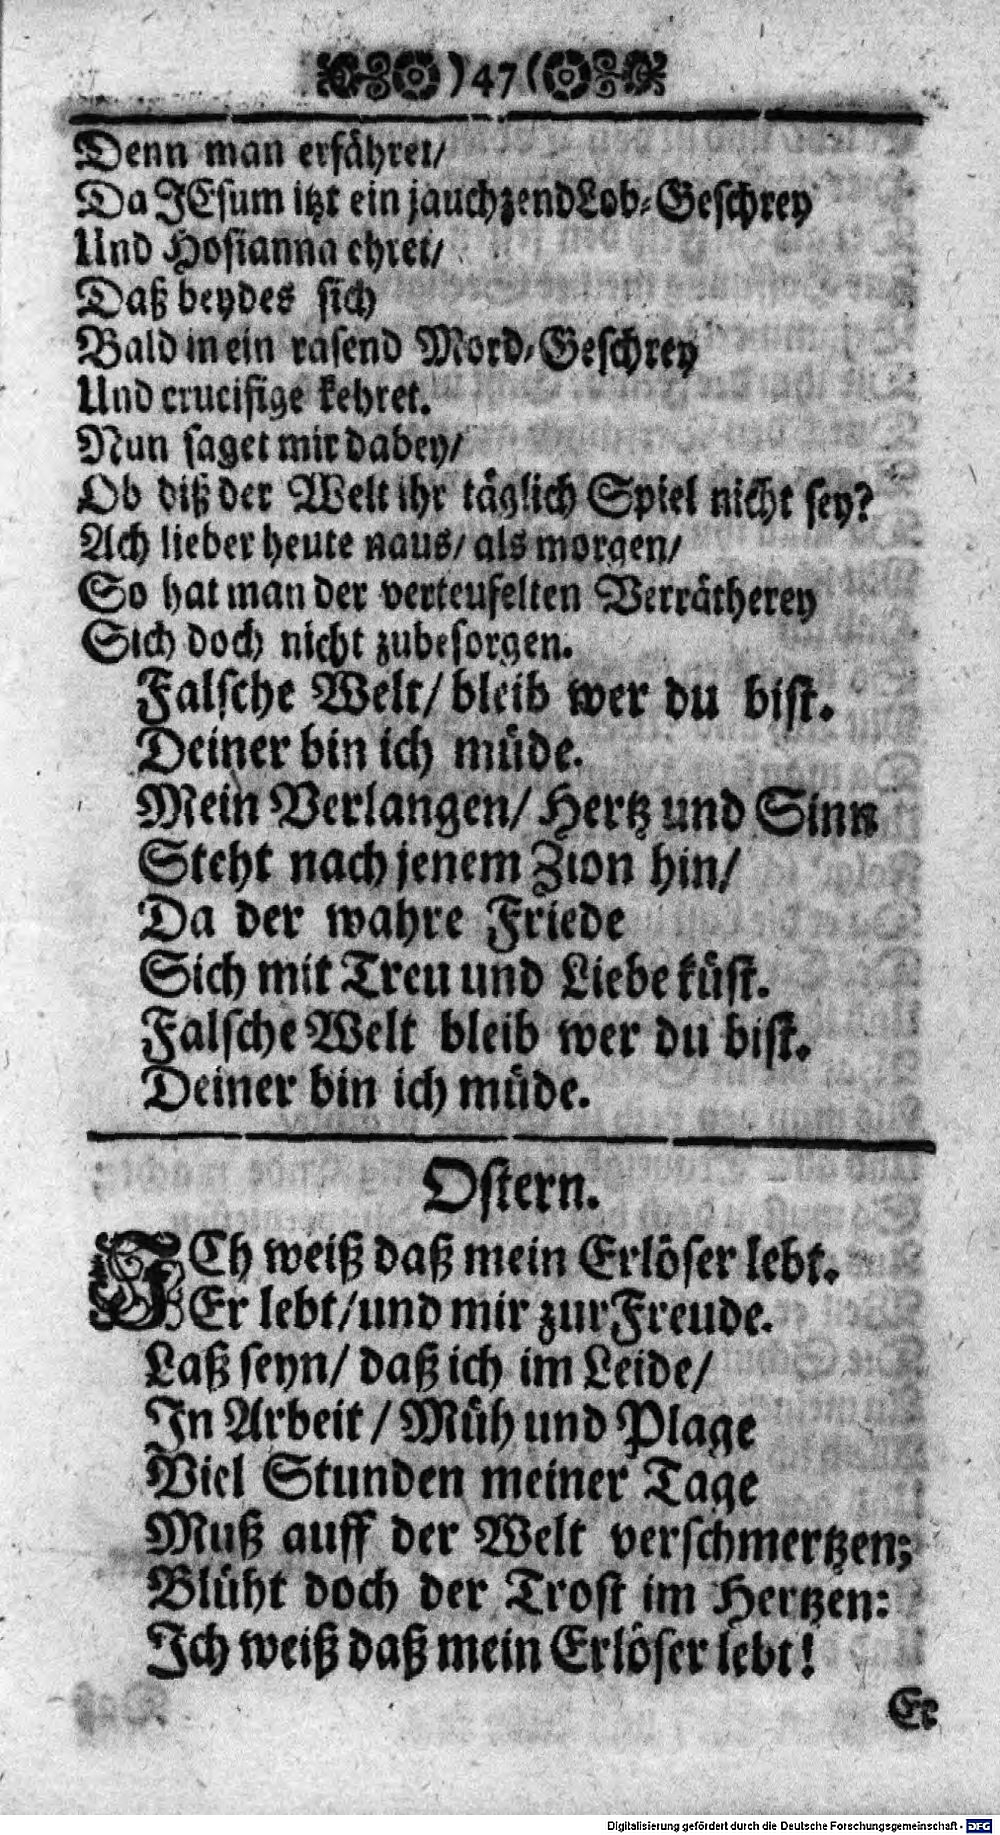 )47(
Denn man erfähret/
Da JEsum itzt ein jauchzend Lob-Geschrey
Und Hosianna ehret/
Daß beydes sich
Bald in ein rasend Mord-Geschrey
Und crucifige kehret.
Nun saget mir dabey/
Ob diß der Welt ihr täglich Spiel nicht sey?
Ach lieber heute naus/ als morgen/
So hat man der verteufelten Verrätherey
Sich doch nicht zubesorgen.
Falsche Welt/ bleib wer du bist.
Deiner bin ich müde.
Mein Verlangen/ Hertz und Sinn
Steht nach jenem Zion hin/
Da der wahre Friede
Sich mit Treu und Liebe küst.
Falsche Welt bleib wer du bist.
Deiner bin ich müde.
Ostern.
JCh weiß daß mein Erlöser lebt.
Er lebt/und mir zur Freude.
Laß seyn/ daß ich im Leide/
In Arbeit / Müh und Plage
Viel Stunden meiner Tage
Muß auff der Welt verschmertzen;
Blüht doch der Trost im Hertzen:
Ich weiß daß mein Erlöser lebt!
Er
Digitalisierung gefördert durch die Deutsche Forschungsgemeinschaft - DFG